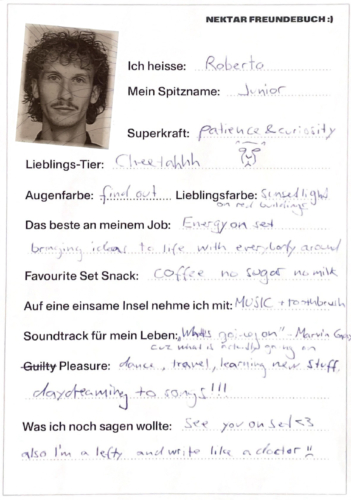 NEKTAR FREUNDEBUCH :)
Ich heisse: Roberto
Mein Spitzname: Junior
Superkraft: patience & curiosity
Lieblings-Tier: Cheetahhh
Augenfarbe: find out Lieblingsfarbe: Sunset light
on red buildings
Das beste an meinem Job: Energy on set
bringing ideas to life with everybody around
Favourite Set Snack: coffee no sugar no milk
Auf eine einsame Insel nehme ich mit: MUSIC + toothbrush
Soundtrack für mein Leben: „What's going on" - Marvin Gaye
cuz what is actually going on
Guilty Pleasure: dance, travel, learning new stuff,
daydreaming to songs!!!
Was ich noch sagen wollte: See you on set <3
also I'm a lefty and write like a doctor !!